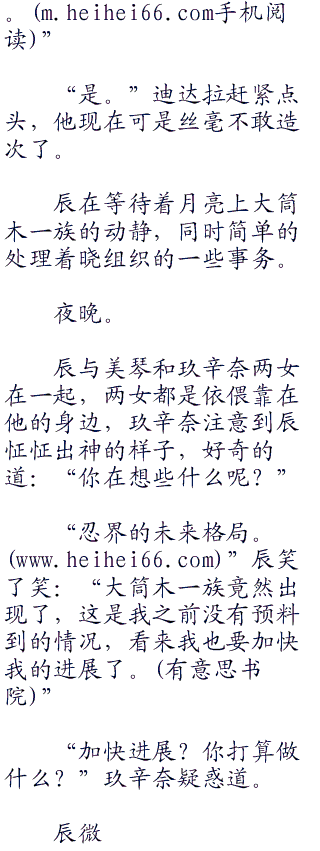 。(m.heihei66.com手机阅
读)”
“是。”迪达拉赶紧点
头，他现在可是丝毫不敢造
次了。
辰在等待着月亮上大筒
木一族的动静，同时简单的
处理着晓组织的一些事务。
夜晚。
辰与美琴和玖辛奈两女
在一起，两女都是依偎靠在
他的身边，玖辛奈注意到辰
怔怔出神的样子，好奇的
道：“你在想些什么呢？”
“忍界的未来格局。
(www.heihei66.com)”辰笑
了笑：“大筒木一族竟然出
现了，这是我之前没有预料
到的情况，看来我也要加快
我的进展了。(有意思书
院)”
“加快进展？你打算做
什么？”玖辛奈疑惑道。
辰微